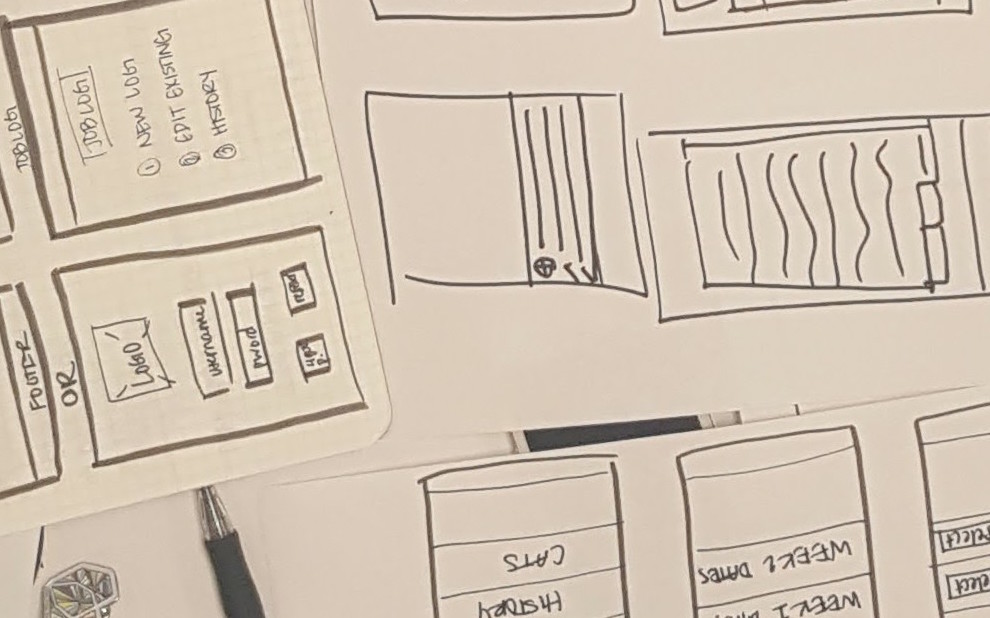 JOBLOG
JOBLOG
① NEW LOG
② EDIT EXISTING
③ HISTORY
FOOTER
OR
LOGO
username
pword
CATS
HISTORY
WEEK 2 DATES
WEEK 1
select
select